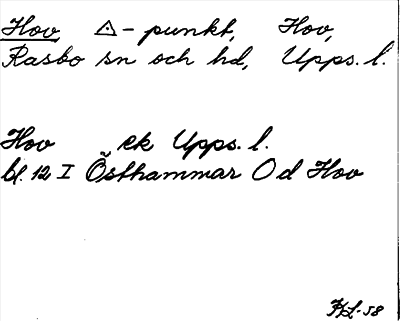 Hov △-punkt, Hov,
Rasbo sn och hd, Upps. l.
Hov ek Upps. l.
bl. 12 I Östhammar Od Hov
HL-58